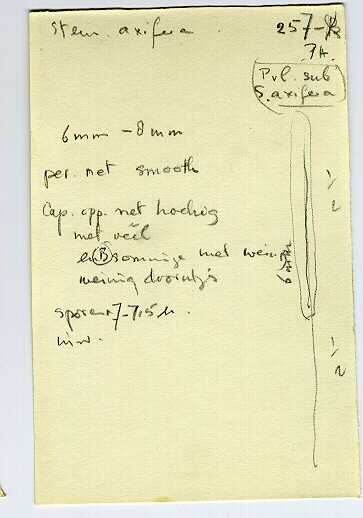 Stem. axifera
257-
7A.
Pvl. sub
S. axifera
6mm - 8mm
per. net smooth
Cap. opp. net hoekig
met veel
en (B) sommige met weinig
weinig doorntjes
1/2
6 mm
sporen 7-7,5 µ.
1/2